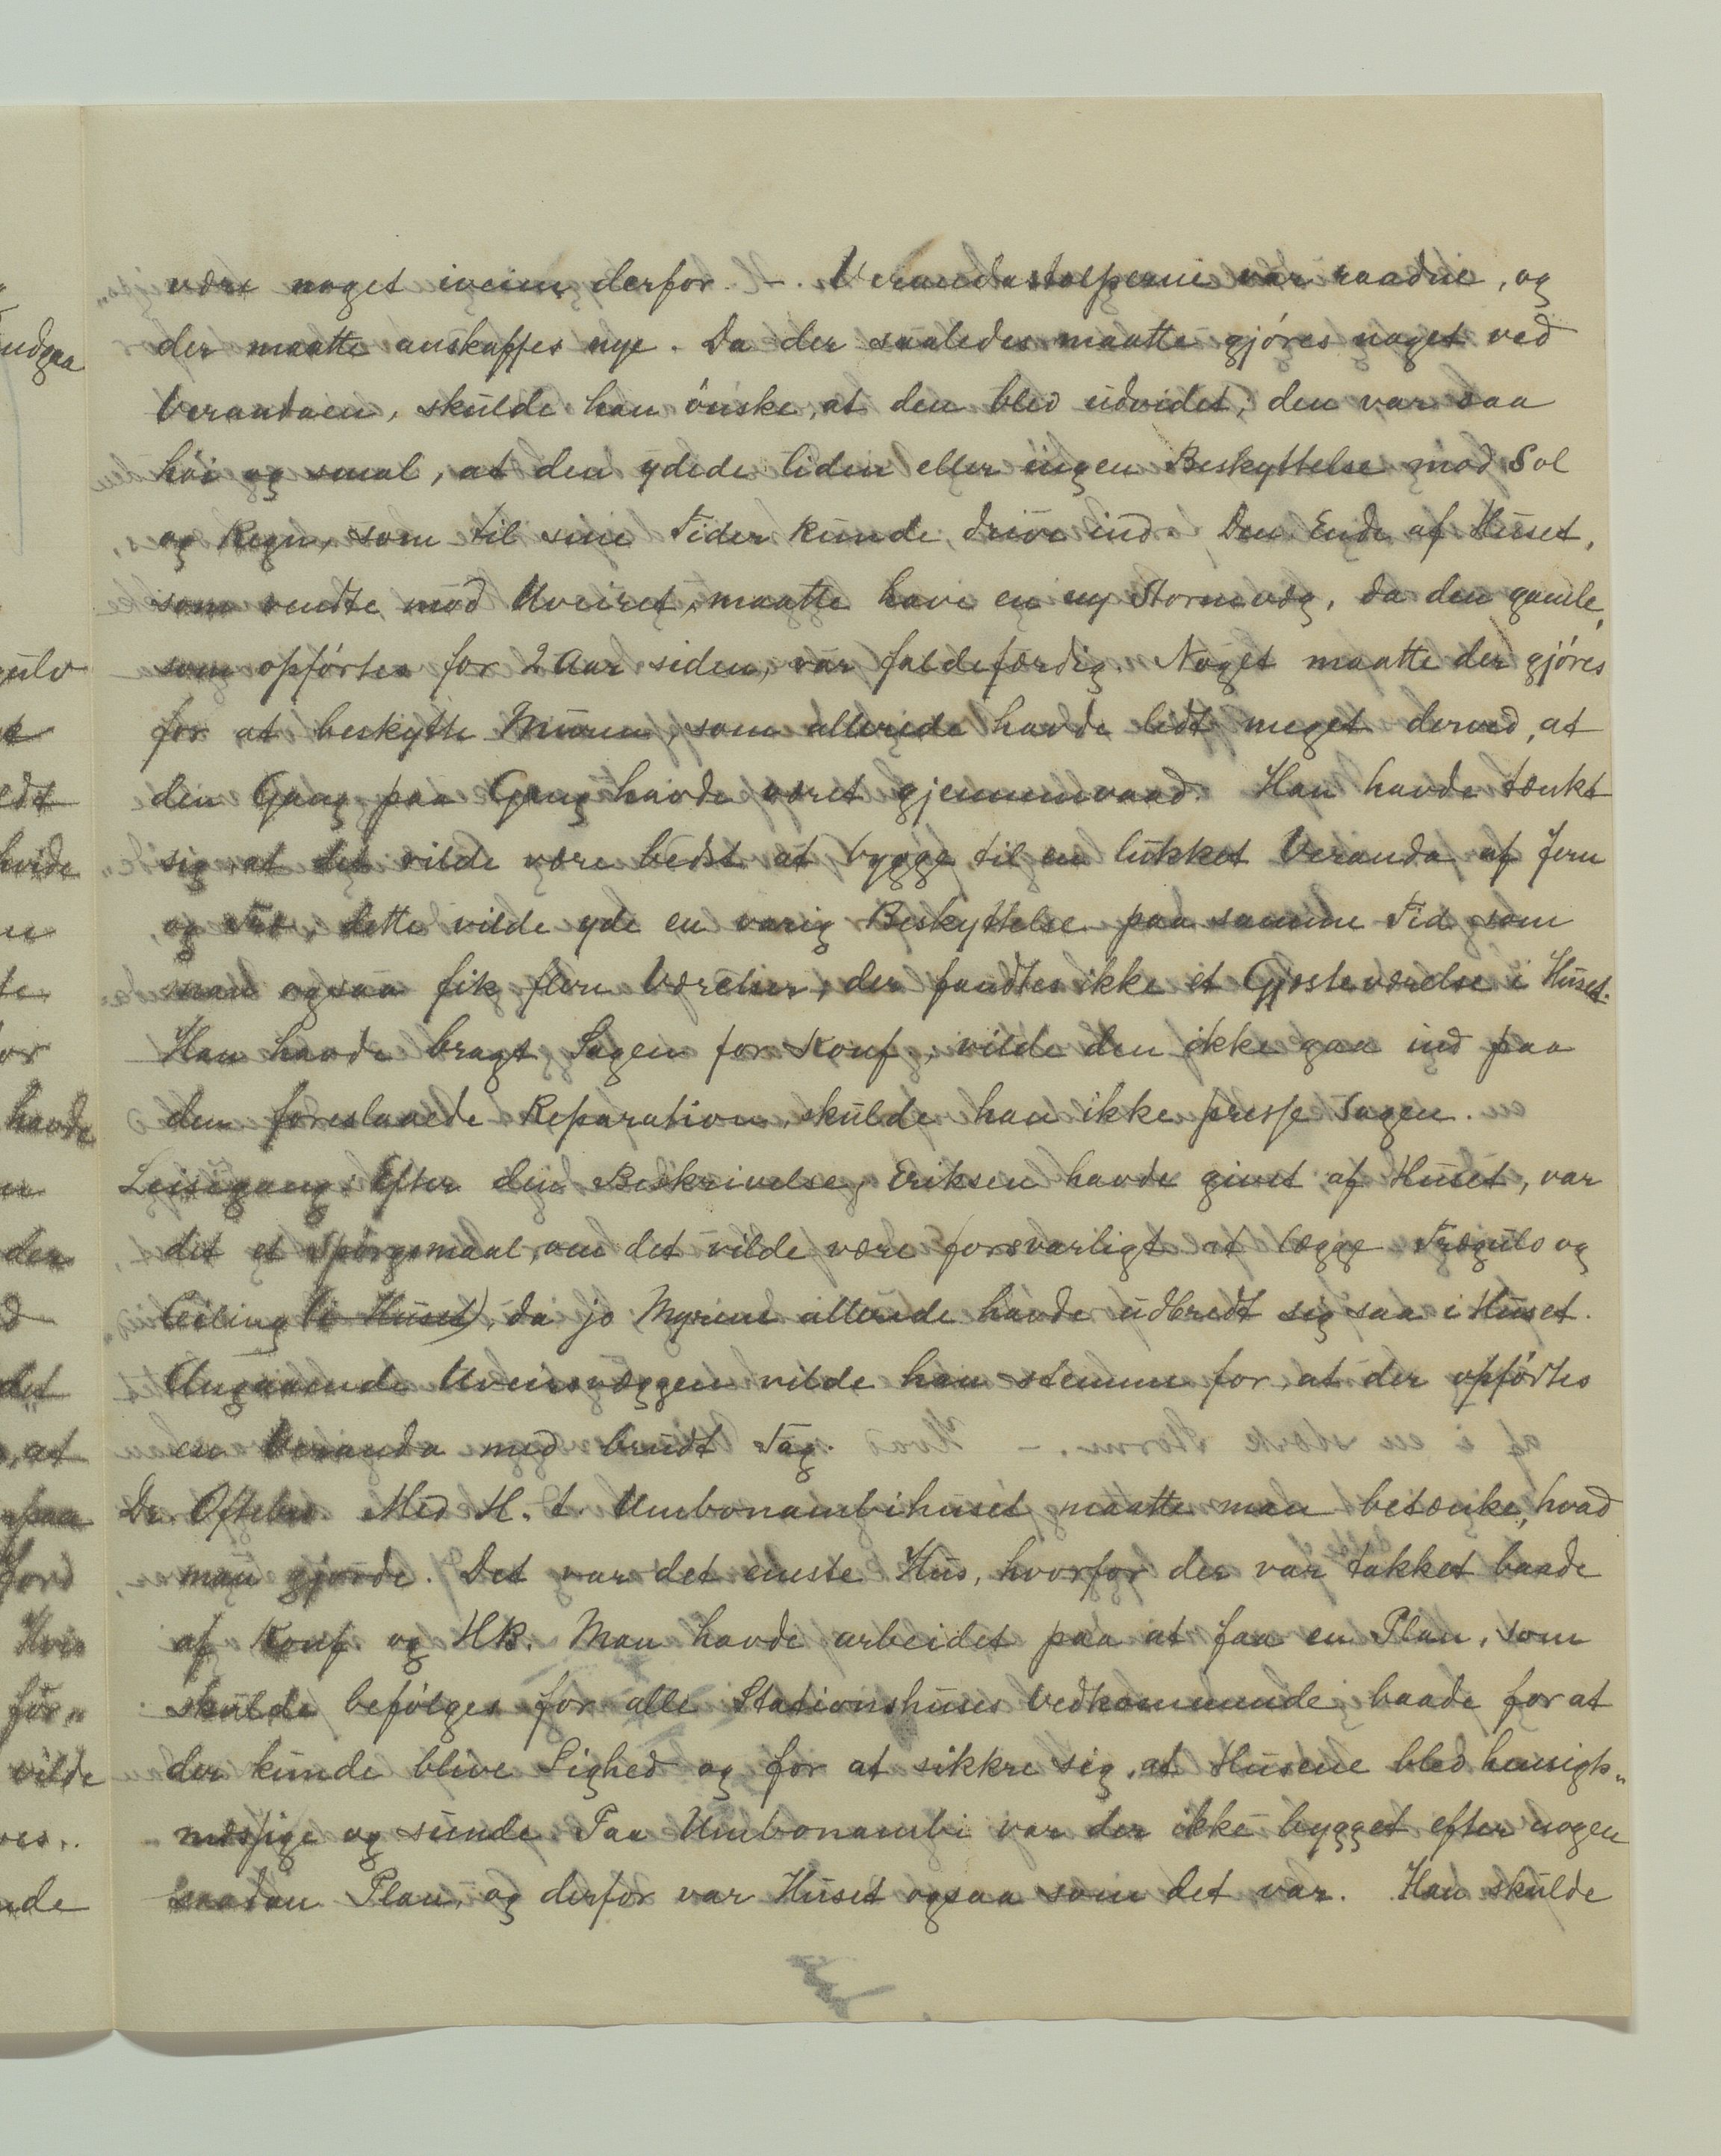 være noget iveien derfor. – . Verandastolperne var raadne, og
der maatte anskaffes nye. Da der saaledes maatte gjøres noget ved
Verandaen, skulde han ønske, at den blev udvidet; den var saa
høi og smal, at den ydede liden eller ingen Beskyttelse mod Sol
og Regn, som til sine Tider kunde drive ind. Den Ende af Huset,
som vendte mod Uveiret, maatte have en ny Stormvæg, da den gamle,
som opførtes for 2 Aar siden, var faldefærdig. Noget maatte der gjøres
for at beskytte Muren, som allerede havde lidt meget derved, at
den Gang paa Gang havde været gjennemvaad. Han havde tænkt
sig, at det vilde være bedst at bygge til en lukket Veranda af Jern
og Træ, dette vilde yde en varig Beskyttelse paa samme Tid som
man ogsaa fik flere Værelser; der fandtes ikke et Gjesteværelse i Huset.
Han havde bragt Sagen for Konf., vilde den ikke gaa ind paa
den foreslaaede Reparation, skulde han ikke presse Sagen.
Leisegang. Efter den Beskrivelse, Eriksen havde givet af Huset, var
det et Spørgsmaal, om det vilde være forsvarligt at lægge Trægulv og
Ceiling (i Huset), da jo Myrene allerede havde udbredt sig saa i Huset.
Angaaende Uveirsvæggen vilde han stemme for, at der opførtes
en Veranda med brudt Tag.
Dr. Oftebro. Med H. t. Umbonambihuset maatte man betænke, hvad
man gjorde. Det var det eneste Hus, hvorfor der var takket baade
af Konf. og HB. Man havde arbeidet paa at faa en Plan, som
skulde befølges for alle Stationshuses Vedkommende baade for at
der kunde blive Lighed og for at sikkre sig, at Husene blev hensigts„
mæssige og sunde. Paa Umbonambi var der ikke bygget efter nogen
saadan Plan, og derfor var Huset ogsaa som det var. Han skulde